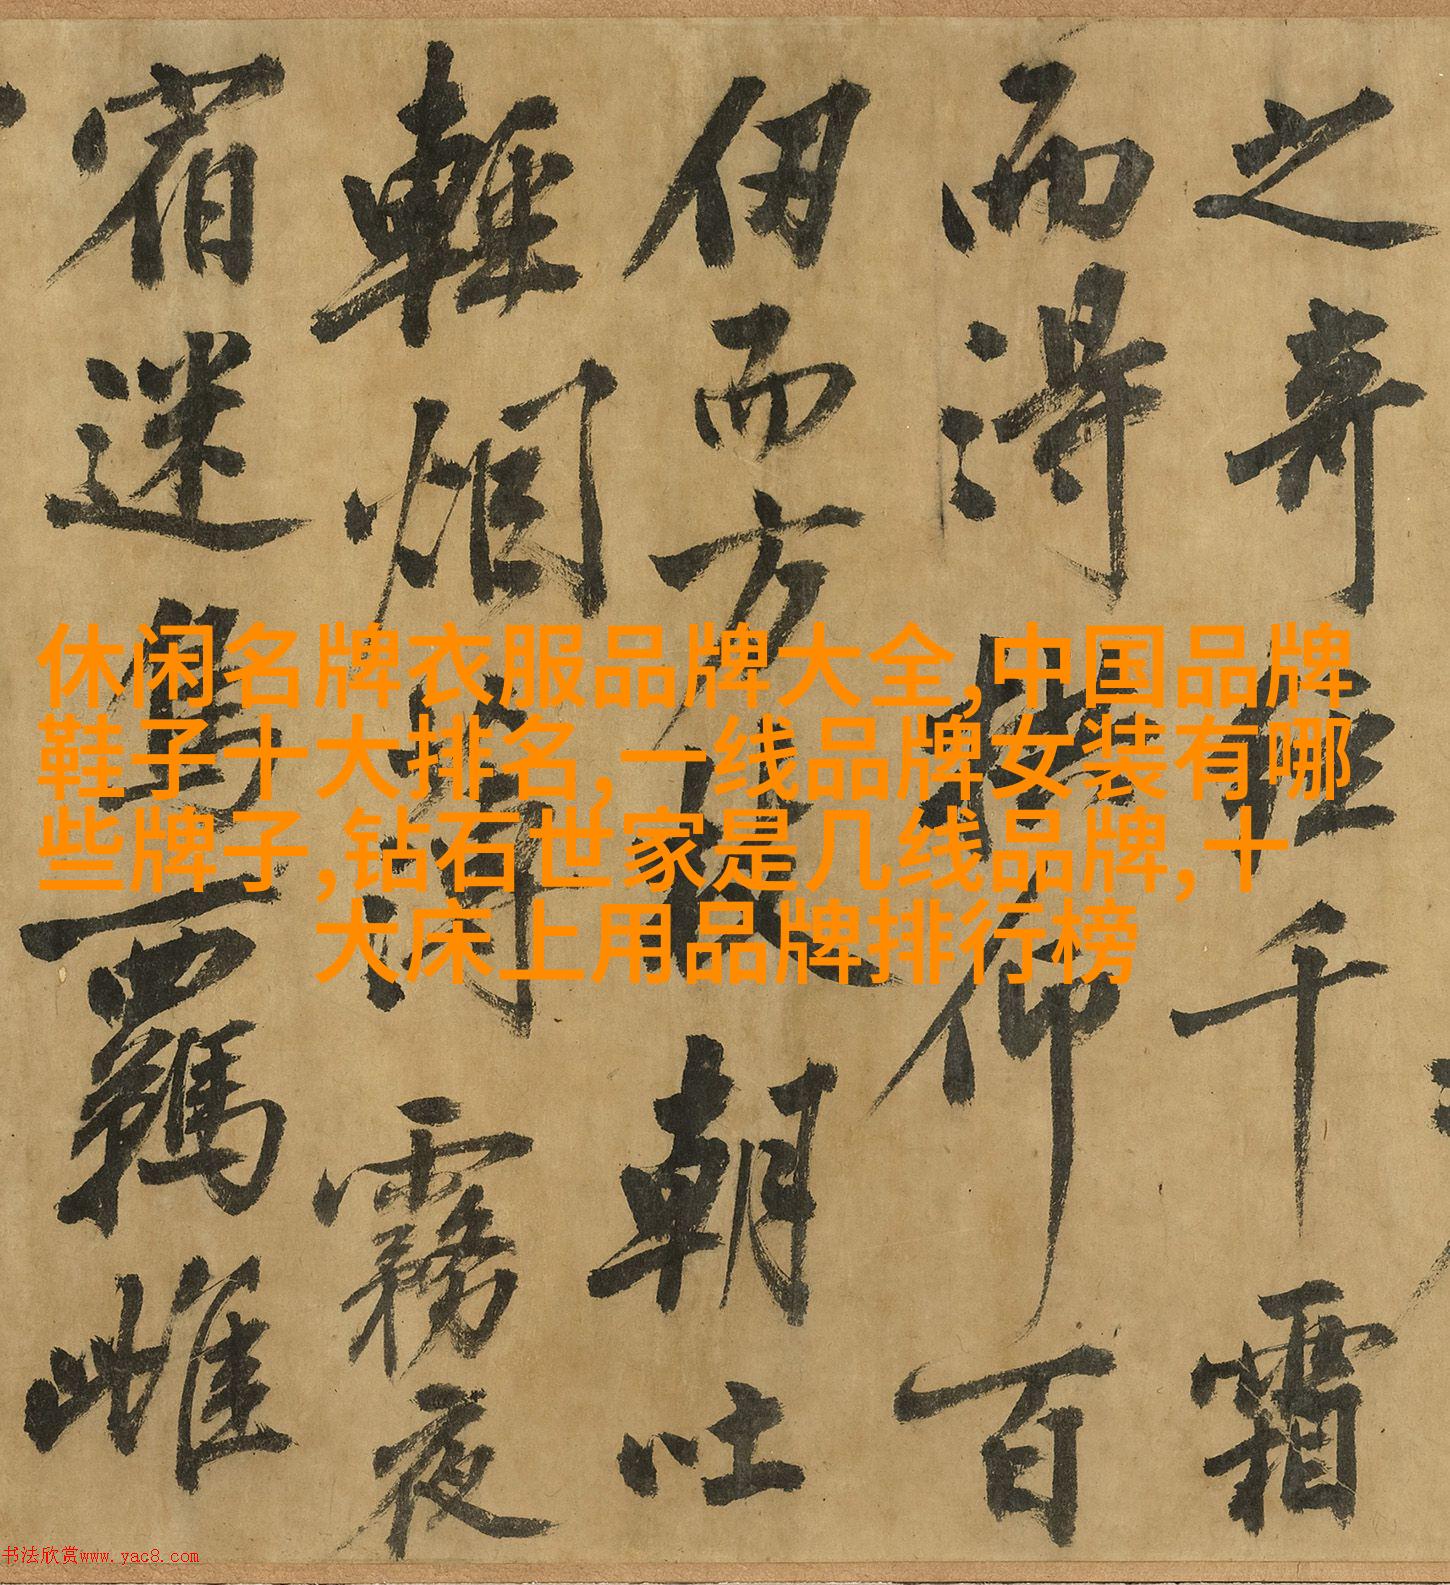 之奇經千霜
而得仰百
仭而方朝吐
輕烟薄霧夜
宿迷鳥羈雌
休闲名牌衣服品牌大全,中国品牌
鞋子十大排名,一线品牌女装有哪
些牌子,钻石世家是几线品牌,十
大床上用品牌排行榜
书法欣赏www.yac8.com